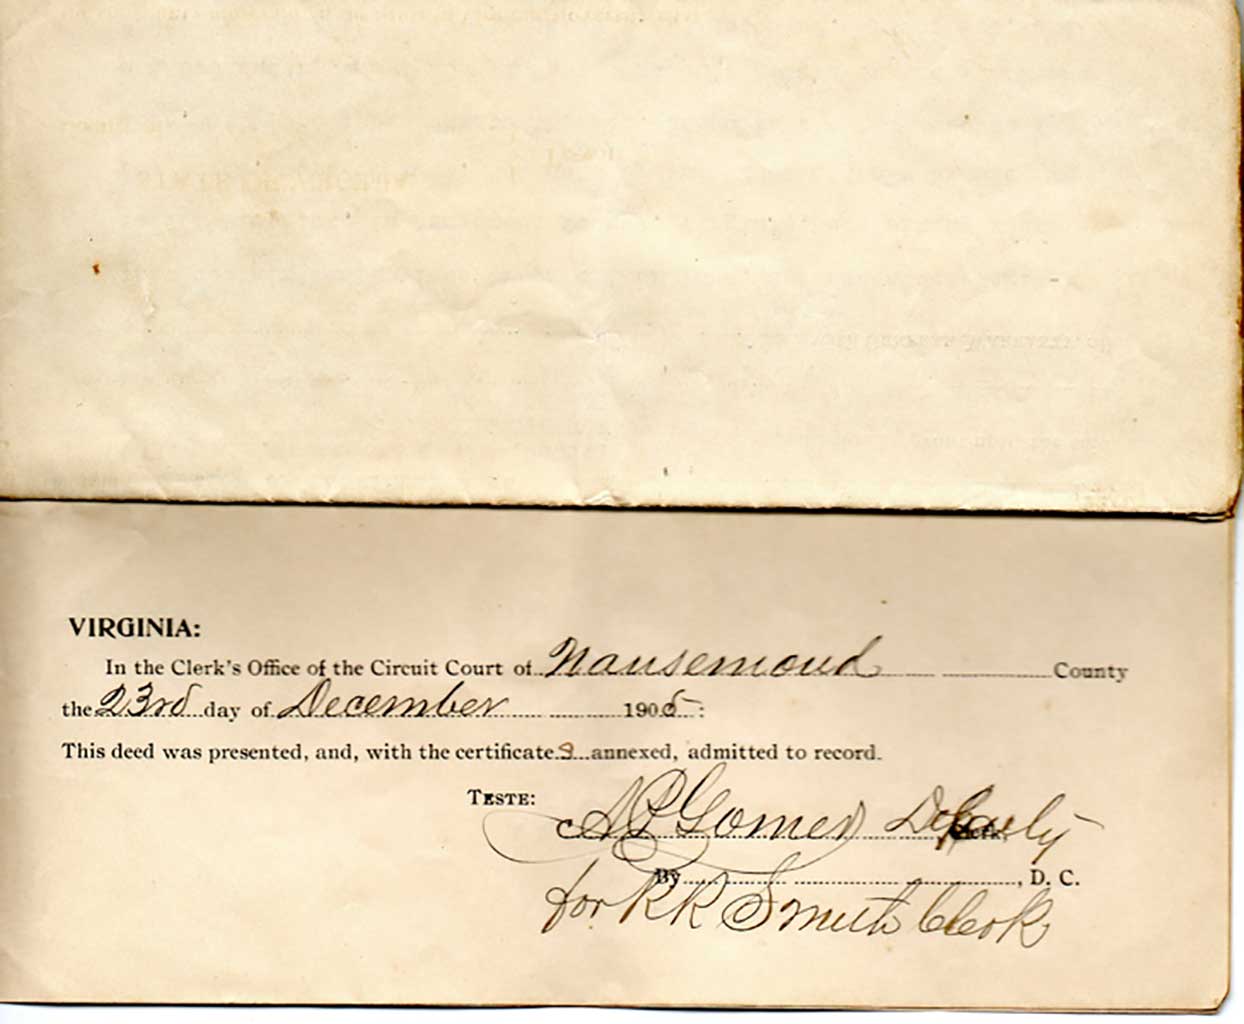 VIRGINIA:
In the Clerk's Office of the Circuit Court of Nansemond County
the 23rd day of December 1905:
This deed was presented, and, with the certificate s annexed, admitted to record.
TESTE:
A P Gomer Deputy
By , D. C.
for R R Smith Clerk